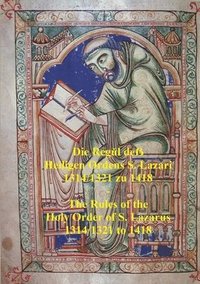 Die Regŭl deß
Heiligen Ordens S. Lazari
1314/1321 zu 1418
~
The Rules of the
Holy Order of S. Lazarus
1314/1321 to 1418